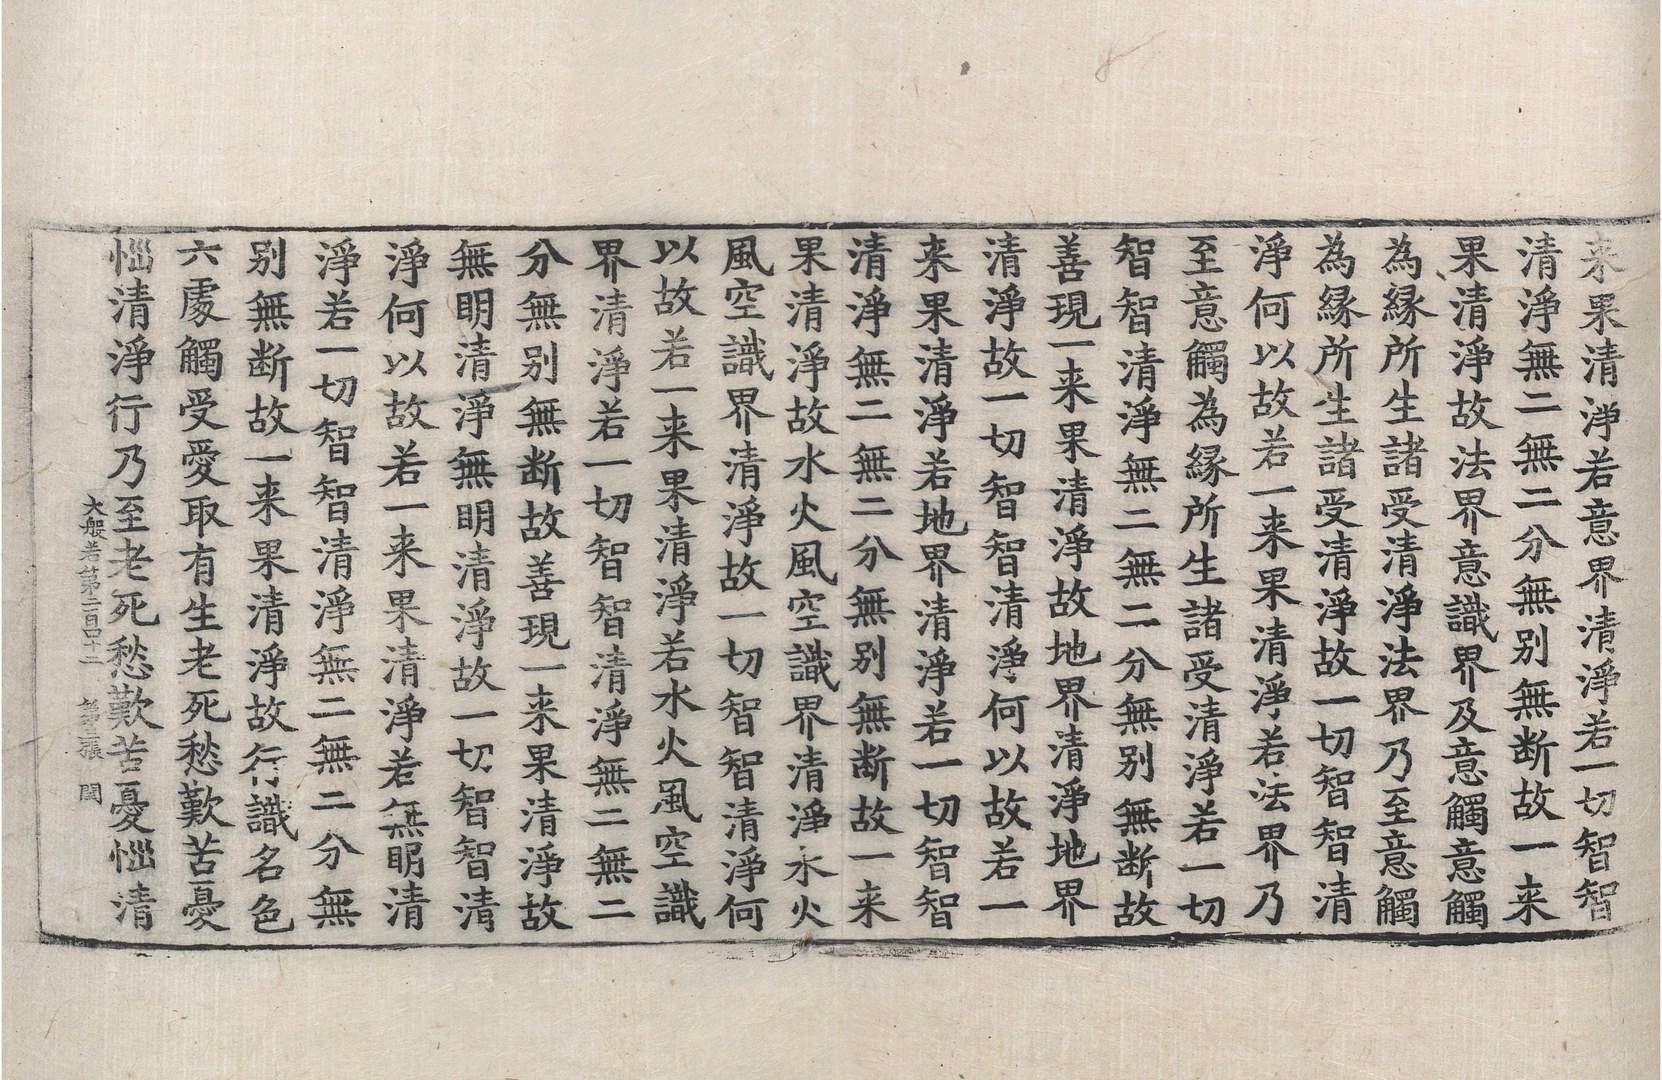 来果清淨若意界清淨若一切智智
清淨無二無二分無别無断故一来
果清淨故法界意識界及意觸意觸
為縁所生諸受清淨法界乃至意觸
為縁所生諸受清淨故一切智智清
淨何以故若一来果清淨若法界乃
至意觸為縁所生諸受清淨若一切
智智清淨無二無二分無别無断故
善現一来果清淨故地界清淨地界
清淨故一切智智清淨何以故若一
来果清淨若地界清淨若一切智智
清淨無二無二分無别無断故一来
果清淨故水火風空識界清淨水火
風空識界清淨故一切智智清淨何
以故若一来果清淨若水火風空識
界清淨若一切智智清淨無二無二
分無别無断故善現一来果清淨故
無眀清淨無眀清淨故一切智智清
淨何以故若一来果清淨若無眀清
淨若一切智智清淨無二無二分無
别無断故一来果清淨故行識名色
六處觸受愛取有生老死愁歎苦憂
惱清淨行乃至老死愁歎苦憂惱清
大般若第二百四十二 第三張 閏